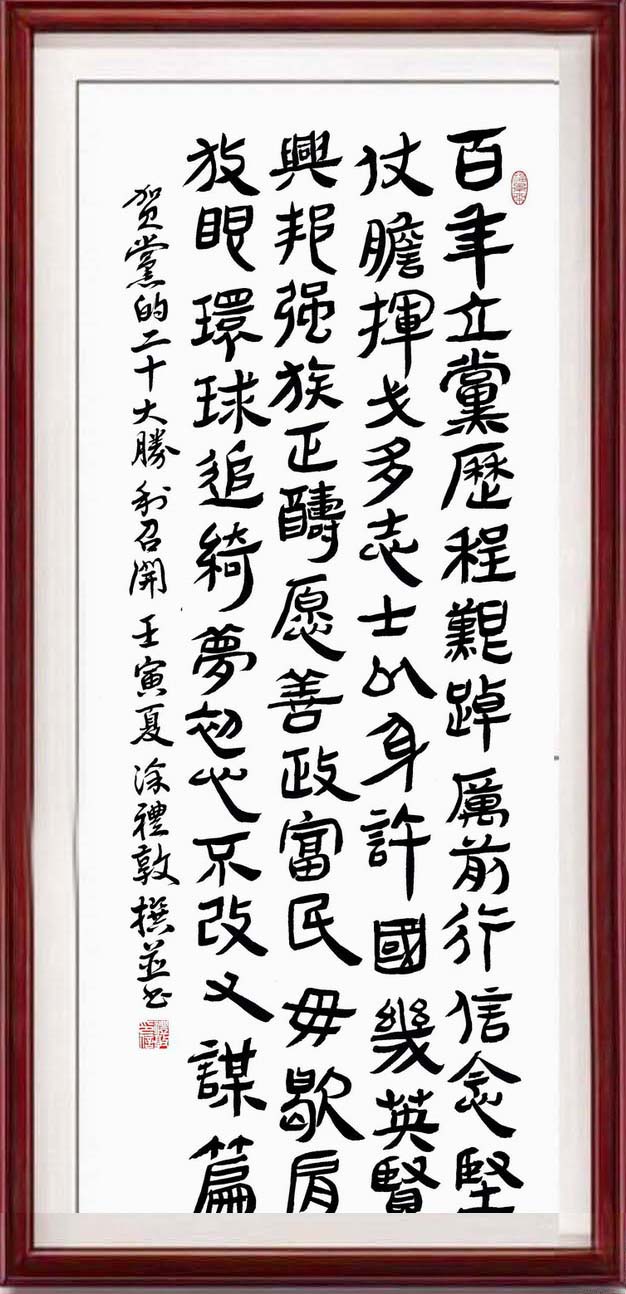 百年立黨歷程艱踔厲前行信念堅
仗膽揮戈多志士以身許國幾英賢
興邦强族正醻愿善政富民毋歇肩
放眼環球追綺夢初心不改又謀篇
贺黨的二十大勝利召開 壬寅夏 涂禮敦撰並书